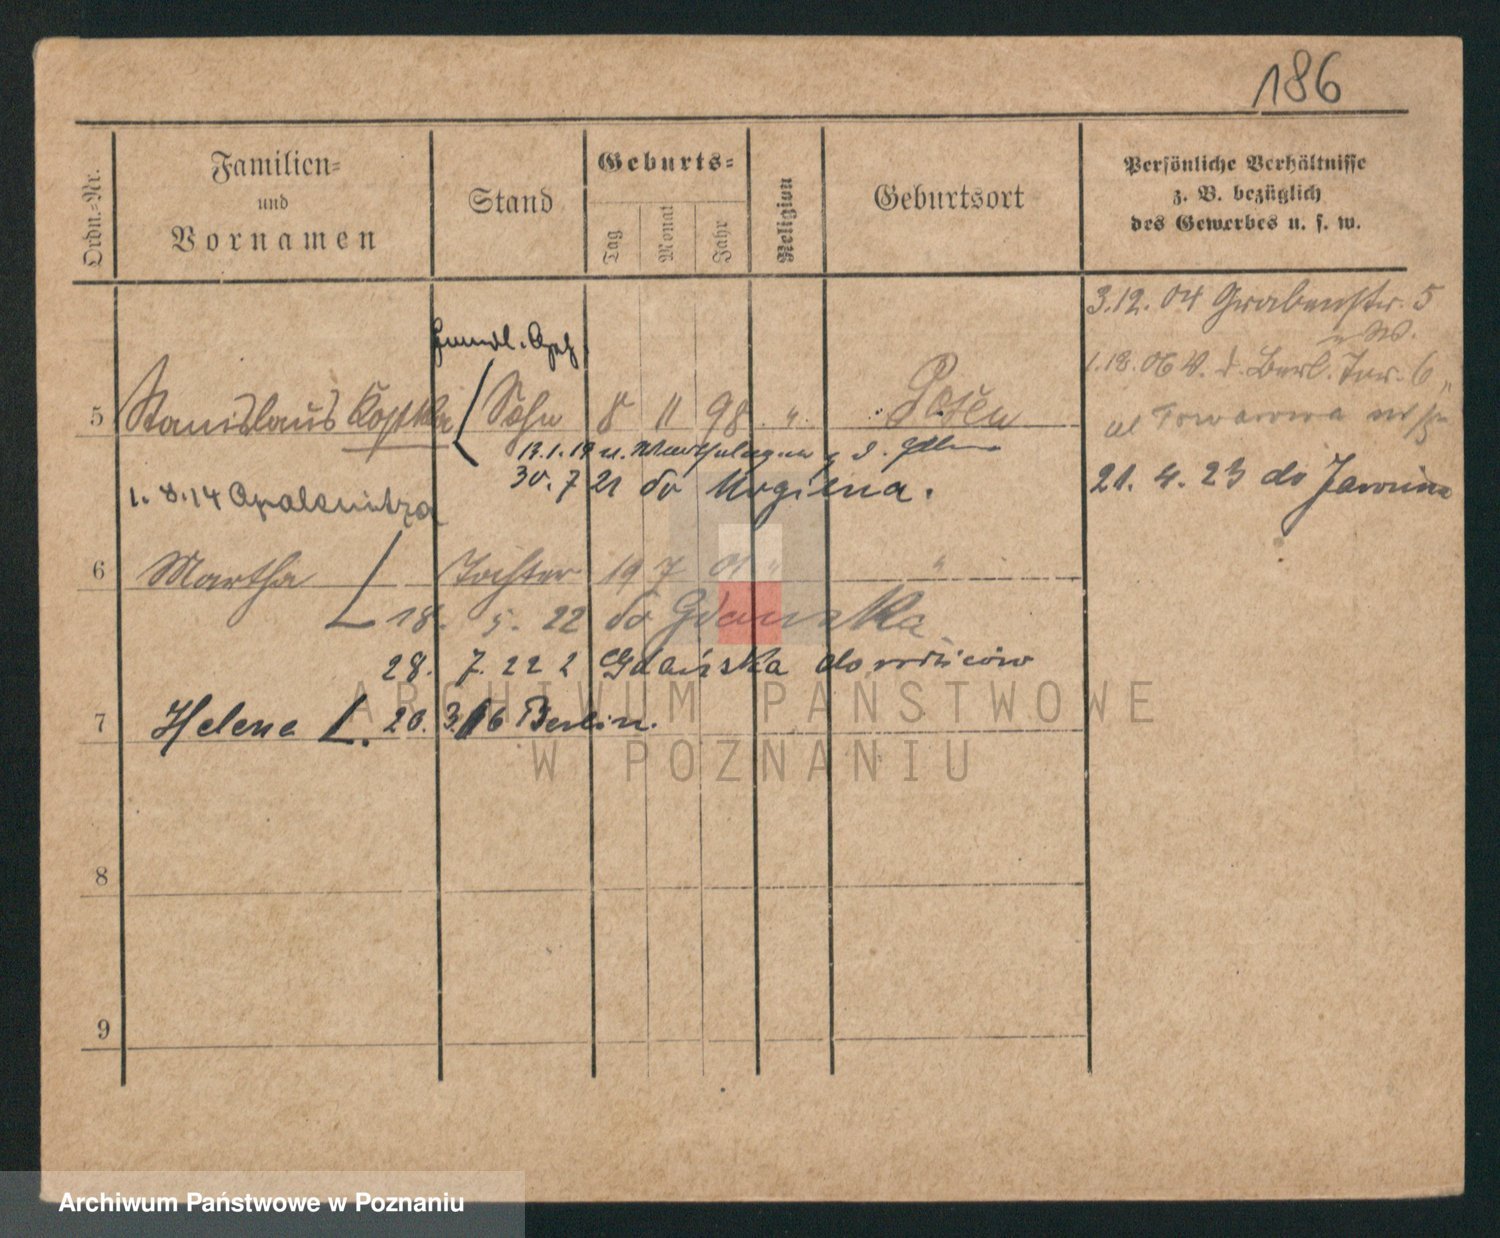 186
Ordn.-Nr.
Familien-
und
Vornamen
Stand
Geburts-
Tag
Monat
Jahr
Religion
Geburtsort
Persönliche Verhältnisse
z. B. bezüglich
des Gewerbes u. s. w.
3.12.04 Grabenstr. 5
1.18.06 V. d. Berl. Tor. 6
5 Stanislaus Kopka Sohn 8 11 98 " Posen
ul Towarowa
13.1.19 u.
30. 7 21 do Mogilna.
21. 4. 23 do Jarocina
1. 8.14 Opalenitza
6 Martha Tochter 19 7 01 " "
18. 5. 22 do Gdańska
28. 7. 22 z Gdańska do rodziców
7 Helene 20.3.16 Berlin.
8
9
ARCHIWUM PAŃSTWOWE
W POZNANIU
Archiwum Państwowe w Poznaniu